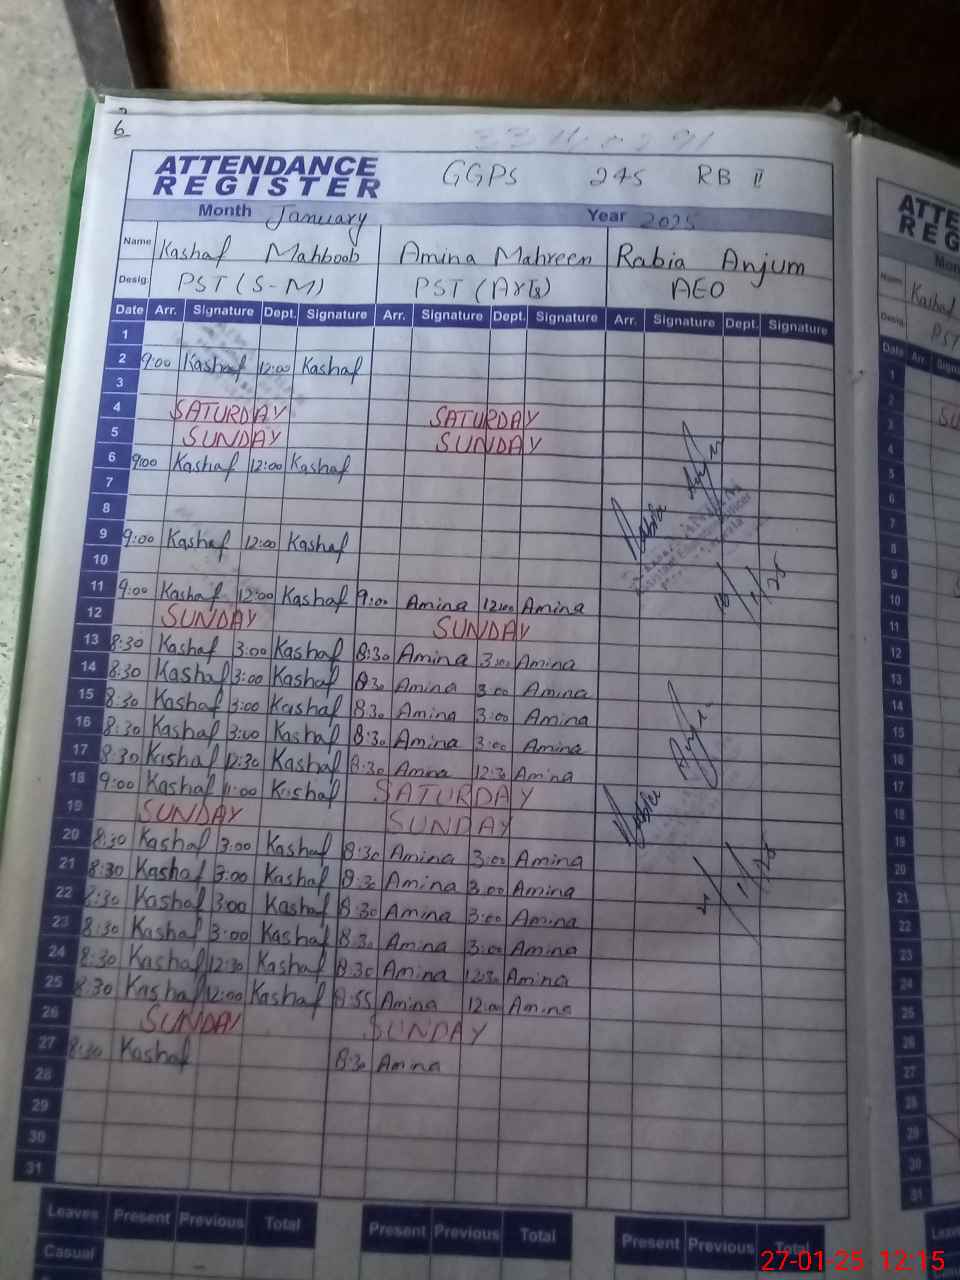 6
ATTENDANCE REGISTER GGPS 245 RB II
Month January Year 2025
Name Kashaf Mahboob Amina Mahreen Rabia Anjum
Desig: PST (S-M) PST (Arts) AEO
Date Arr. Signature Dept. Signature Arr. Signature Dept. Signature Arr. Signature Dept. Signature
1
2 9:00 Kashaf 12:00 Kashaf
3
4 SATURDAY SATURDAY
5 SUNDAY SUNDAY
6 9:00 Kashaf 12:00 Kashaf
7
8
9 9:00 Kashaf 12:00 Kashaf
10
11 9:00 Kashaf 12:00 Kashaf 9:00 Amina 12:00 Amina
12 SUNDAY SUNDAY
13 8:30 Kashaf 3:00 Kashaf 8:30 Amina 3:00 Amina
14 8:30 Kashaf 3:00 Kashaf 8:30 Amina 3:00 Amina
15 8:30 Kashaf 3:00 Kashaf 8:30 Amina 3:00 Amina
16 8:30 Kashaf 3:00 Kashaf 8:30 Amina 3:00 Amina
17 8:30 Kashaf 12:30 Kashaf 8:30 Amina 12:30 Amina
18 9:00 Kashaf 11:00 Kashaf SATURDAY
19 SUNDAY SUNDAY
20 8:30 Kashaf 3:00 Kashaf 8:30 Amina 3:00 Amina
21 8:30 Kashaf 3:00 Kashaf 8:30 Amina 3:00 Amina
22 8:30 Kashaf 3:00 Kashaf 8:30 Amina 3:00 Amina
23 8:30 Kashaf 3:00 Kashaf 8:30 Amina 3:00 Amina
24 8:30 Kashaf 12:30 Kashaf 8:30 Amina 12:30 Amina
25 8:30 Kashaf 12:00 Kashaf 8:55 Amina 12:00 Amina
26 SUNDAY SUNDAY
27 8:30 Kashaf 8:30 Amina
28
29
30
31
Rabia Anjum
Rabia Anjum
Leaves Present Previous Total Present Previous Total Present Previous Total
Casual
ATTE
REG
Mon
Name Kashaf
Desig: PST
Date Arr. Signa
1
2
3 SU
4
5
6
7
8
9
10
11
12
13
14
15
16
17
18
19
20
21
22
23
24
25
26
27
28
29
30
31
27-01-25 12:15